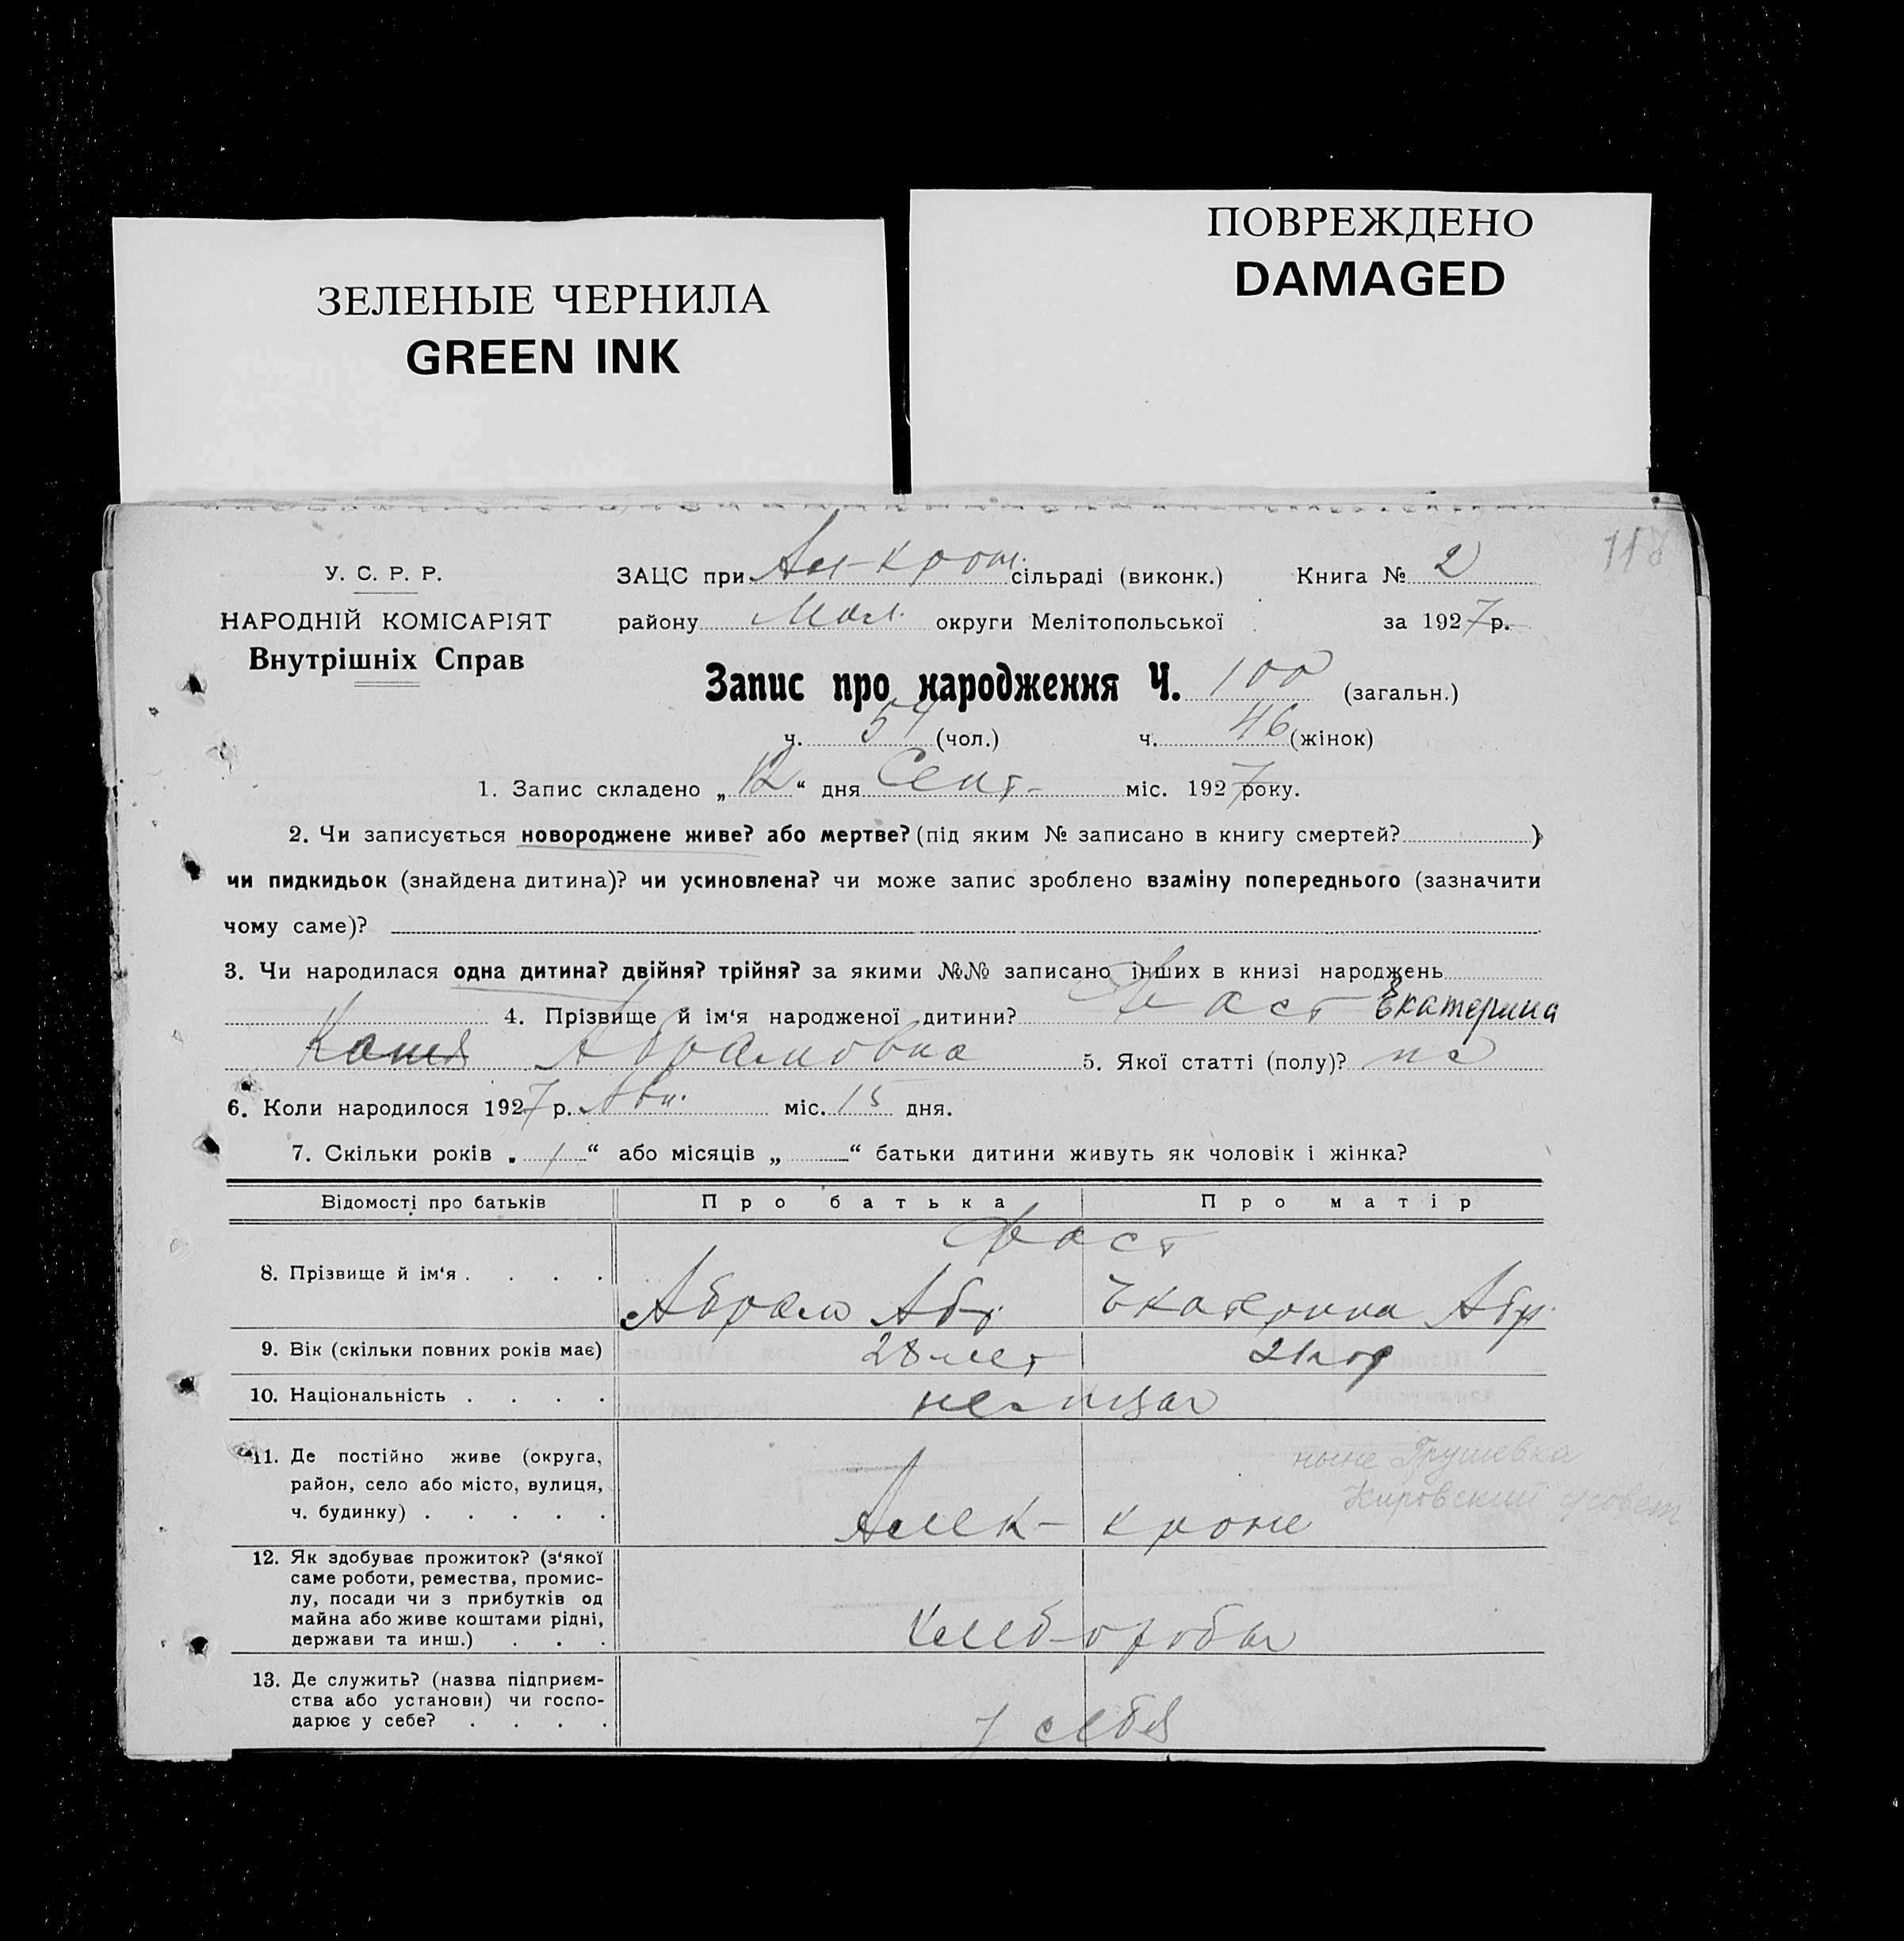 ЗЕЛЕНЫЕ ЧЕРНИЛА
GREEN INK
ПОВРЕЖДЕНО
DAMAGED
У. С. Р. Р.
НАРОДНІЙ КОМІСАРІЯТ
Внутрішніх Справ
ЗАЦС при сільраді (виконк.) Книга № 2
району Мол. округи Мелітопольської за 1927 р.
Запис про народження Ч. 100 (загальн.)
ч. 54 (чол.) ч. 46 (жінок)
1. Запис складено „ 12 “ дня Сент. міс. 1927 року.
2. Чи записується новороджене живе? або мертве? (під яким № записано в книгу смертей? )
чи пидкидьок (знайдена дитина)? чи усиновлена? чи може запис зроблено взаміну попереднього (зазначити
чому саме)?
3. Чи народилася одна дитина? двійня? трійня? за якими №№ записано інших в книзі народжень
4. Прізвище й ім‘я народженої дитини? Фаст Екатерина
Катя Абрамовна 5. Якої статті (полу)?
6. Коли народилося 1927 р. Авг. міс. 15 дня.
7. Скільки років „ 1 “ або місяців „ “ батьки дитини живуть як чоловік і жінка?
Відомості про батьків Про батька Про матір
Фаст
8. Прізвище й ім‘я . . . . Абрам Абр. Екатерина Абр.
9. Вік (скільки повних років має) 28 лет 21 год
10. Національність . . . . немцы
11. Де постійно живе (округа,
район, село або місто, вулиця,
ч. будинку) . . . . . Алек-кроне
ныне Грушевка
Кировский с/совет
12. Як здобуває прожиток? (з‘якої
саме роботи, ремества, промис-
лу, посади чи з прибутків од
майна або живе коштами рідні,
держави та инш.) . . . хлеборобы
13. Де служить? (назва підприєм-
ства або установи) чи госпо-
дарює у себе? . . . . у себя